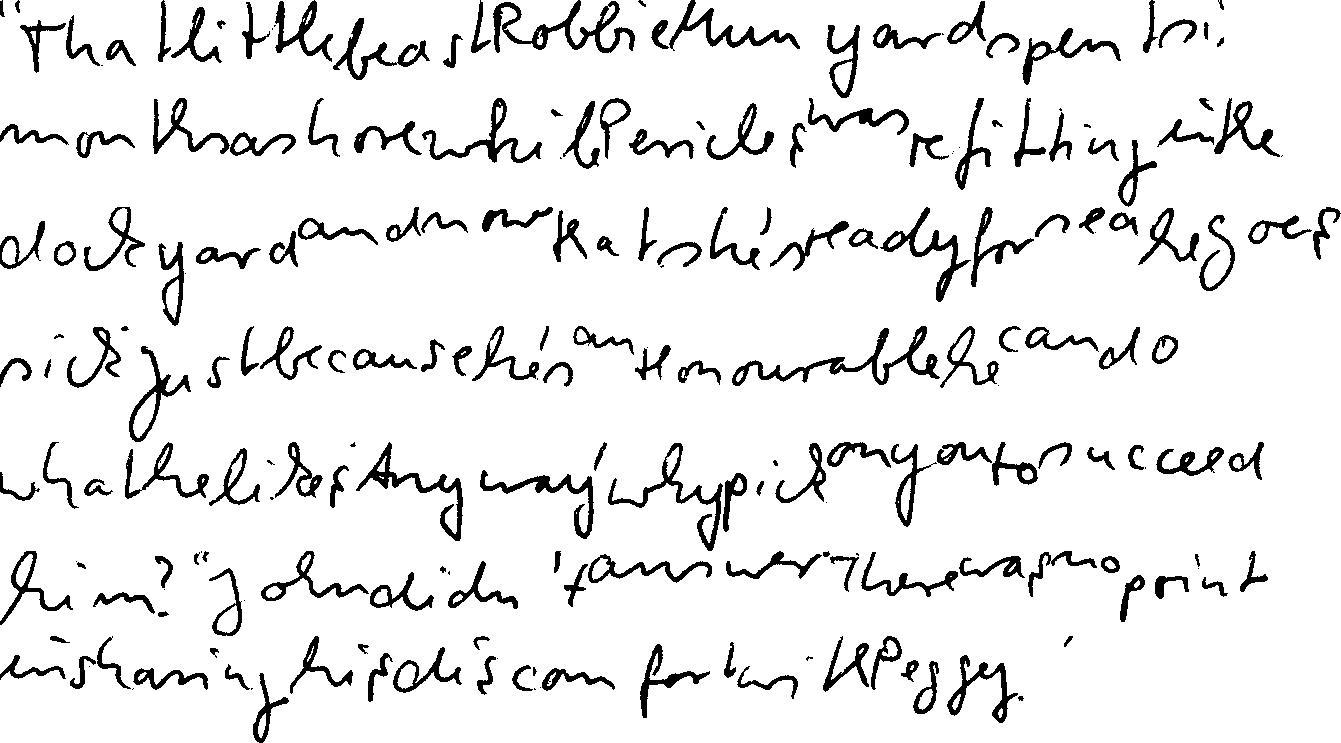 "That little beast Robbie Munyard spent si.
months ashore while Pericles was refitting in the
dockyard and now that she's ready for sea he goes
sick just because he's an Honourable he can do
what he likes Anyway, why pick on you to succeed
him?" John didn't answer There was no point
in sharing his discomfort with Peggy.